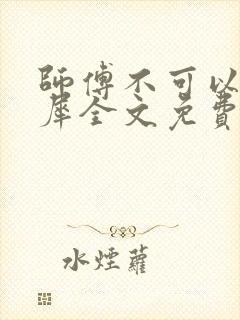 師傅不可以
犀全文免費
水煙蘿